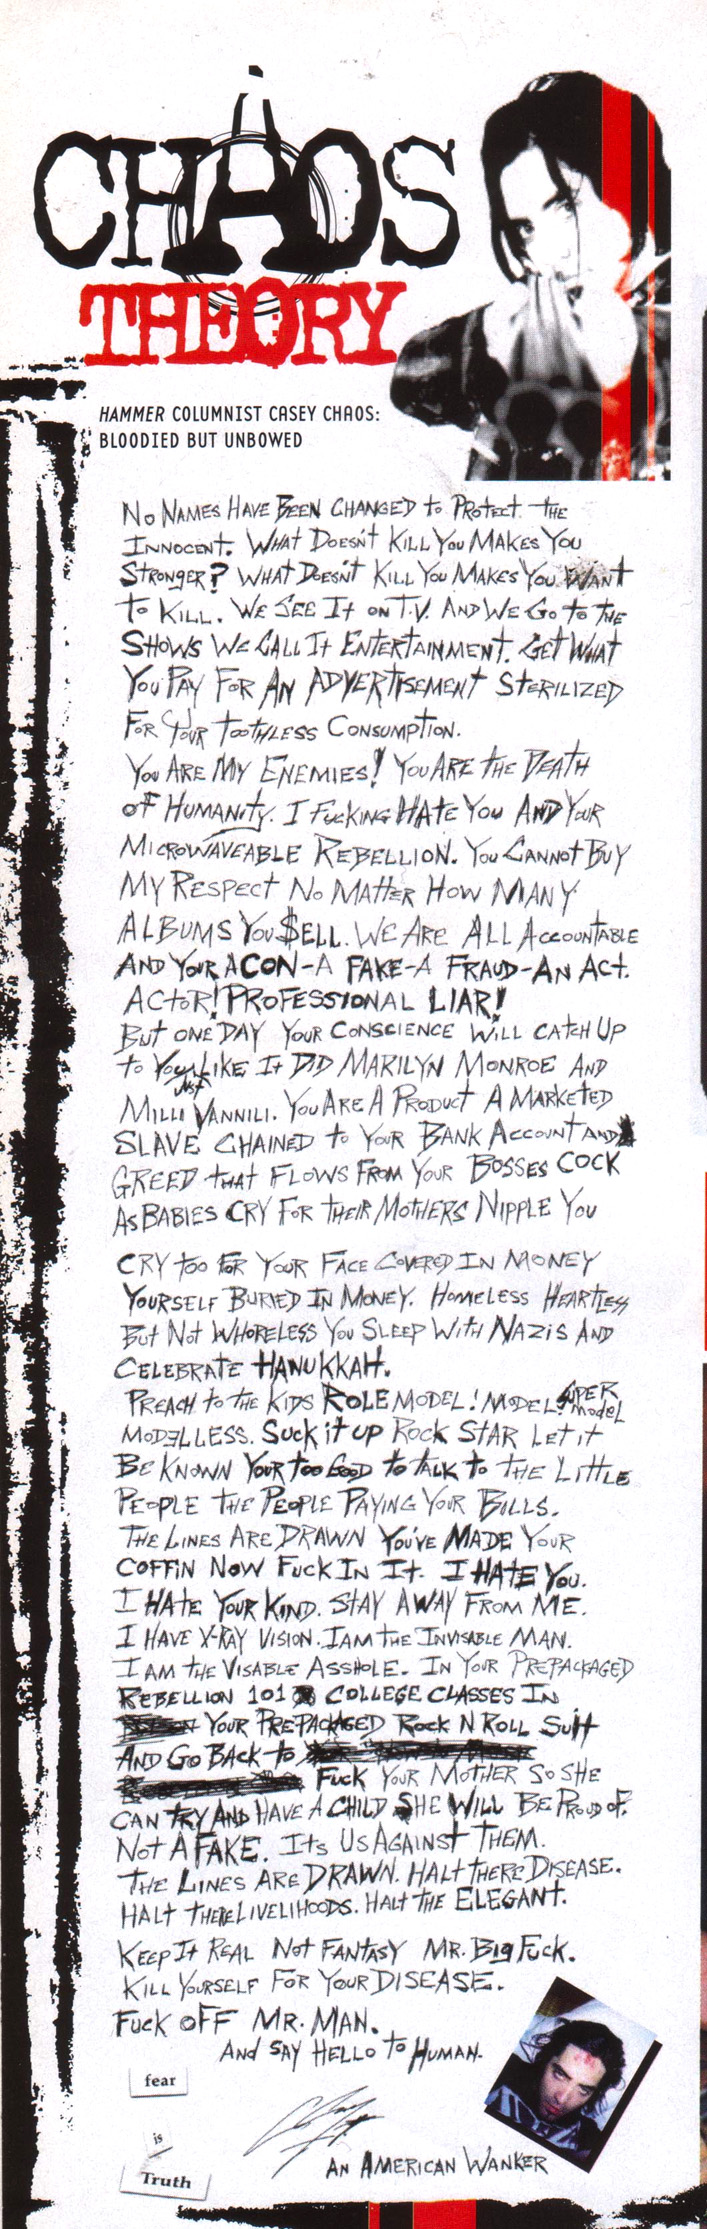 CHAOS
THEORY
HAMMER COLUMNIST CASEY CHAOS:
BLOODIED BUT UNBOWED
No NAMES HAVE BEEN CHANGED to PRotect tHE
INNOCENt. WHAT DOESN't KILL YOU MAKES YOU
StRONGER? WHAT DOESN't KILL YOU MAKES YOU WANT
to KILL. WE SEE It ON T.V. AND WE GO to tHE
SHOWS WE CALL It ENTERTAINMENT. GET WHAT
YOU PAY FOR AN ADVERTISEMENT STERILIZED
FOR YOUR TOOTHLESS CONSUMPTION.
YOU ARE MY ENEMIES! YOU ARE tHE DEATH
OF HUMANity. I FUCKING HATE YOU AND YOUR
MICROWAVEABLE REBELLION. YOU CANNOT BUY
MY RESPECT NO MATTER HOW MANY
ALBUMS YOU $ELL. WE ARE ALL ACCOUNTABLE
AND YOUR A CON-A FAKE-A FRAUD-AN ACT.
ACtoR! PROFESSIONAL LIAR!
BUT ONE DAY YOUR CONSCIENCE WILL CATCH UP
to YOU JUST LIKE It DID MARILYN MONROE AND
MILLI VANNILI. YOU ARE A PRODUCT A MARKETED
SLAVE CHAINED to YOUR BANK ACCOUNT AND
GREED tHAT FLOWS FROM YOUR BOSSES COCK
AS BABIES CRY FOR tHEIR MOTHERS NIPPLE YOU
CRY too FOR YOUR FACE COVERED IN MONEY
YOURSELF BURIED IN MONEY. HOMELESS HEARTLESS
BUT NOT WHORELESS YOU SLEEP WITH NAZIS AND
CELEBRATE HANUKKAH.
PREACH to tHE KIDS ROLE MODEL! MODEL! SUPER model
MODELLESS. SUCK it UP ROCK STAR LET it
BE KNOWN YOUR too GOOD to tALK to THE LITTLE
PEOPLE THE PEOPLE PAYING YOUR BILLS.
THE LINES ARE DRAWN YOU'VE MADE YOUR
COFFIN NOW FUCK IN It. I HATE YOU.
I HATE YOUR KIND. STAY AWAY FROM ME.
I HAVE X-RAY VISION. I AM THE INVISABLE MAN.
I AM tHE VISABLE ASSHOLE. IN YOUR PREPACKAGED
REBELLION 101 COLLEGE CLASSES IN
YOUR PREPACKAGED ROCK N ROLL SUIT
AND GO BACK to
FUCK YOUR MOTHER SO SHE
CAN TRY AND HAVE A CHILD SHE WILL BE PROUD OF.
NOT A FAKE. ITS US AGAINST THEM.
THE LINES ARE DRAWN. HALT tHERE DISEASE.
HALT tHERE LIVELIHOODS. HALT tHE ELEGANT.
KEEP It REAL NOT FANTASY MR. BIG FUCK.
KILL YOURSELF FOR YOUR DISEASE.
FUCK OFF MR. MAN.
AND SAY HELLO to HUMAN.
fear
is
Truth
AN AMERICAN WANKER